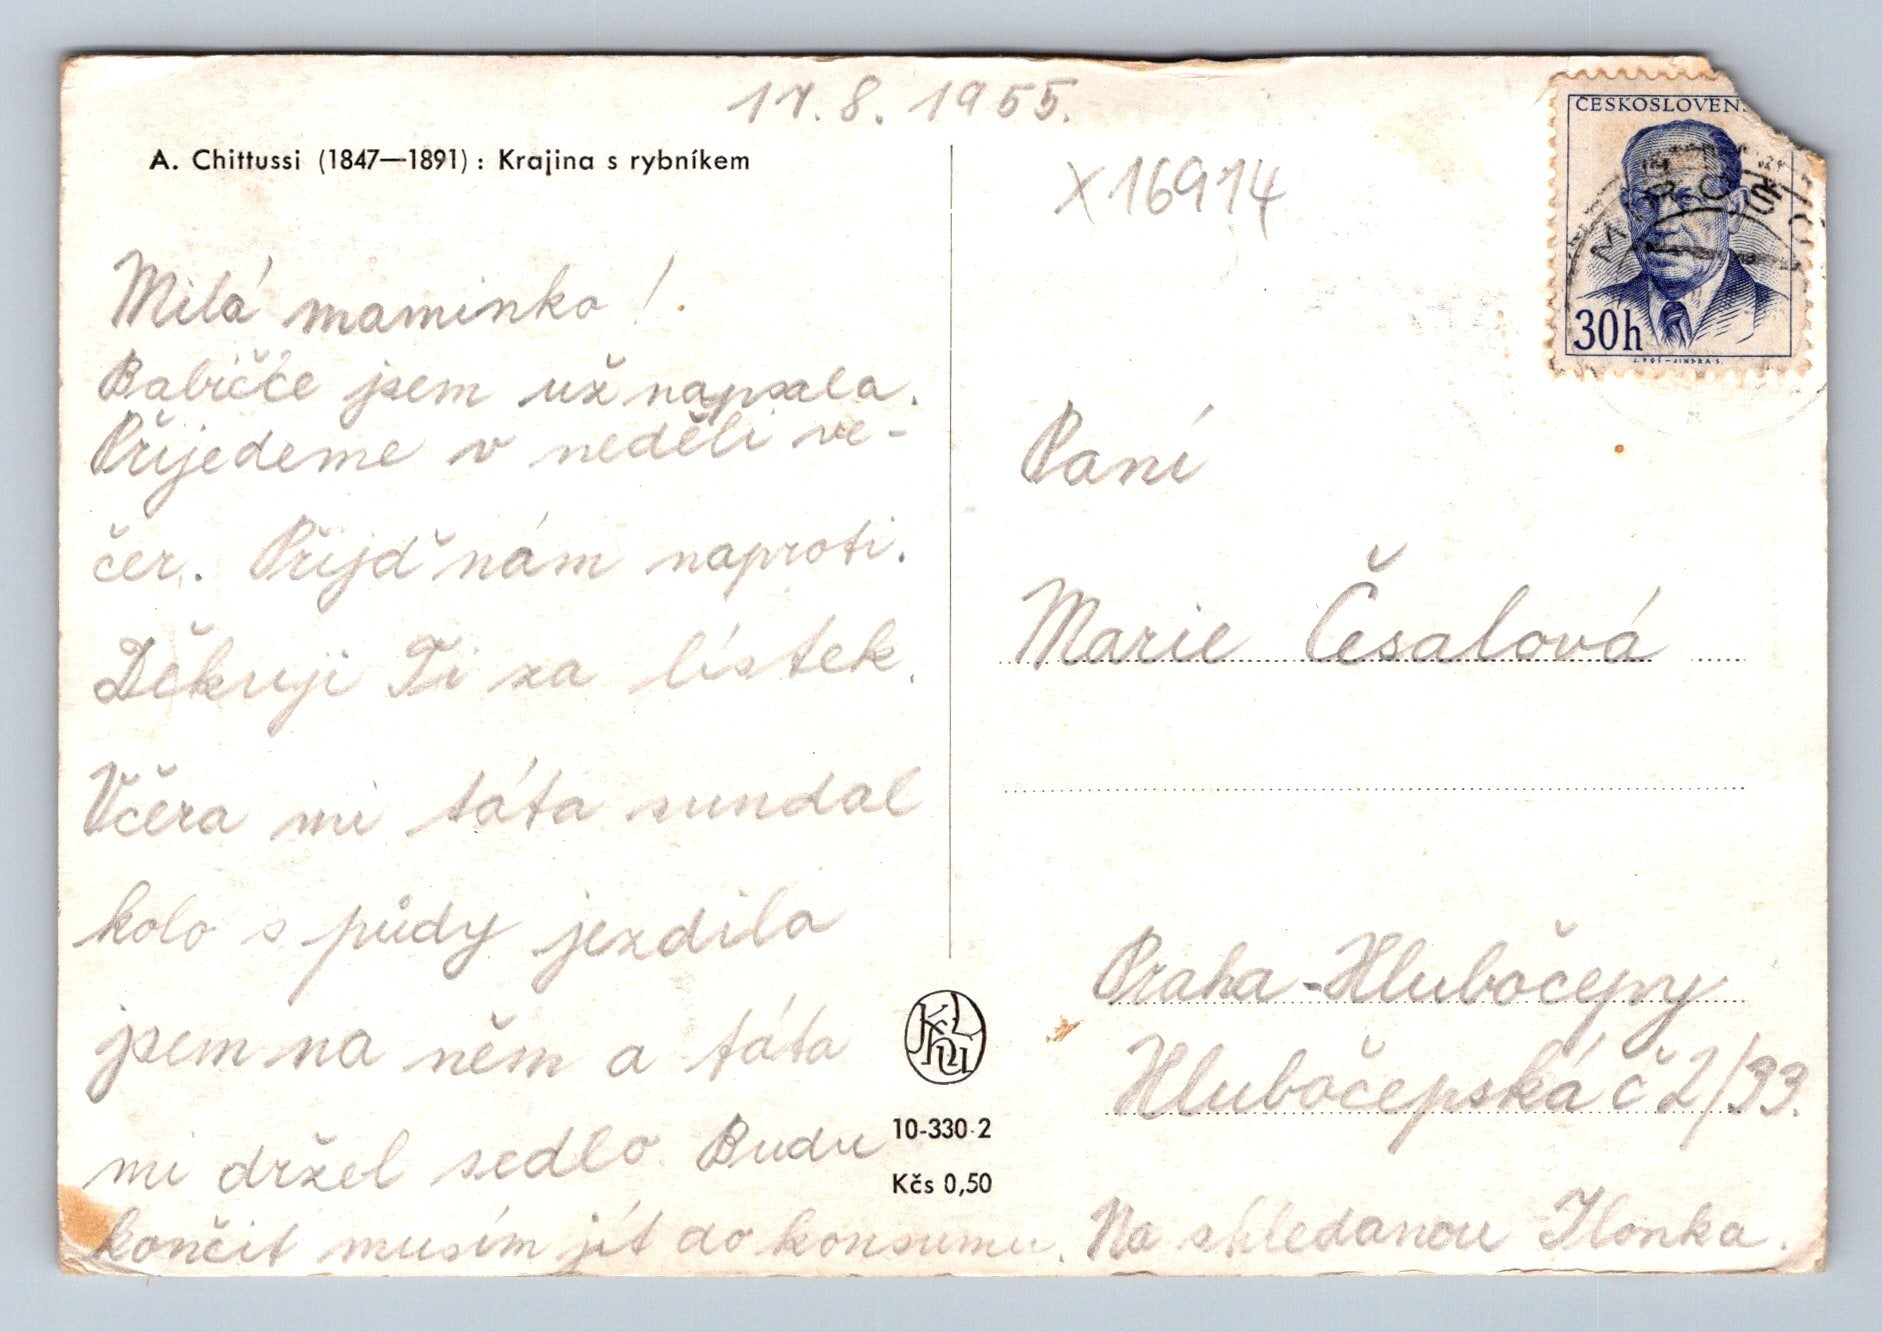 17. 8. 1955.
A. Chittussi (1847—1891) : Krajina s rybníkem
Milá maminko!
Babičče jsem už napsala.
Přijedeme v neděli ve-
čer. Přijď nám naproti.
Děkuji Ti za lístek.
Včera mi táta sundal
kolo s půdy jezdila
jsem na něm a táta
mi držel sedlo. Budu
končit musím jít do konsumu. Na shledanou Ilonka.
10-330-2
Kčs 0,50
ČESKOSLOVEN
30h
J. POŠ-JINDRA S.
X16914
Paní
Marie Česalová
Praha-Hlubočepy
Hlubočepská č 2/33.